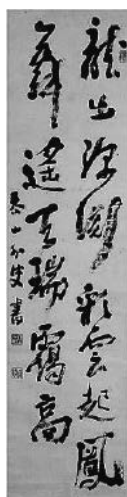 龍出深淵彩雲起鳳
舞遙天瑞靄高
山外史書